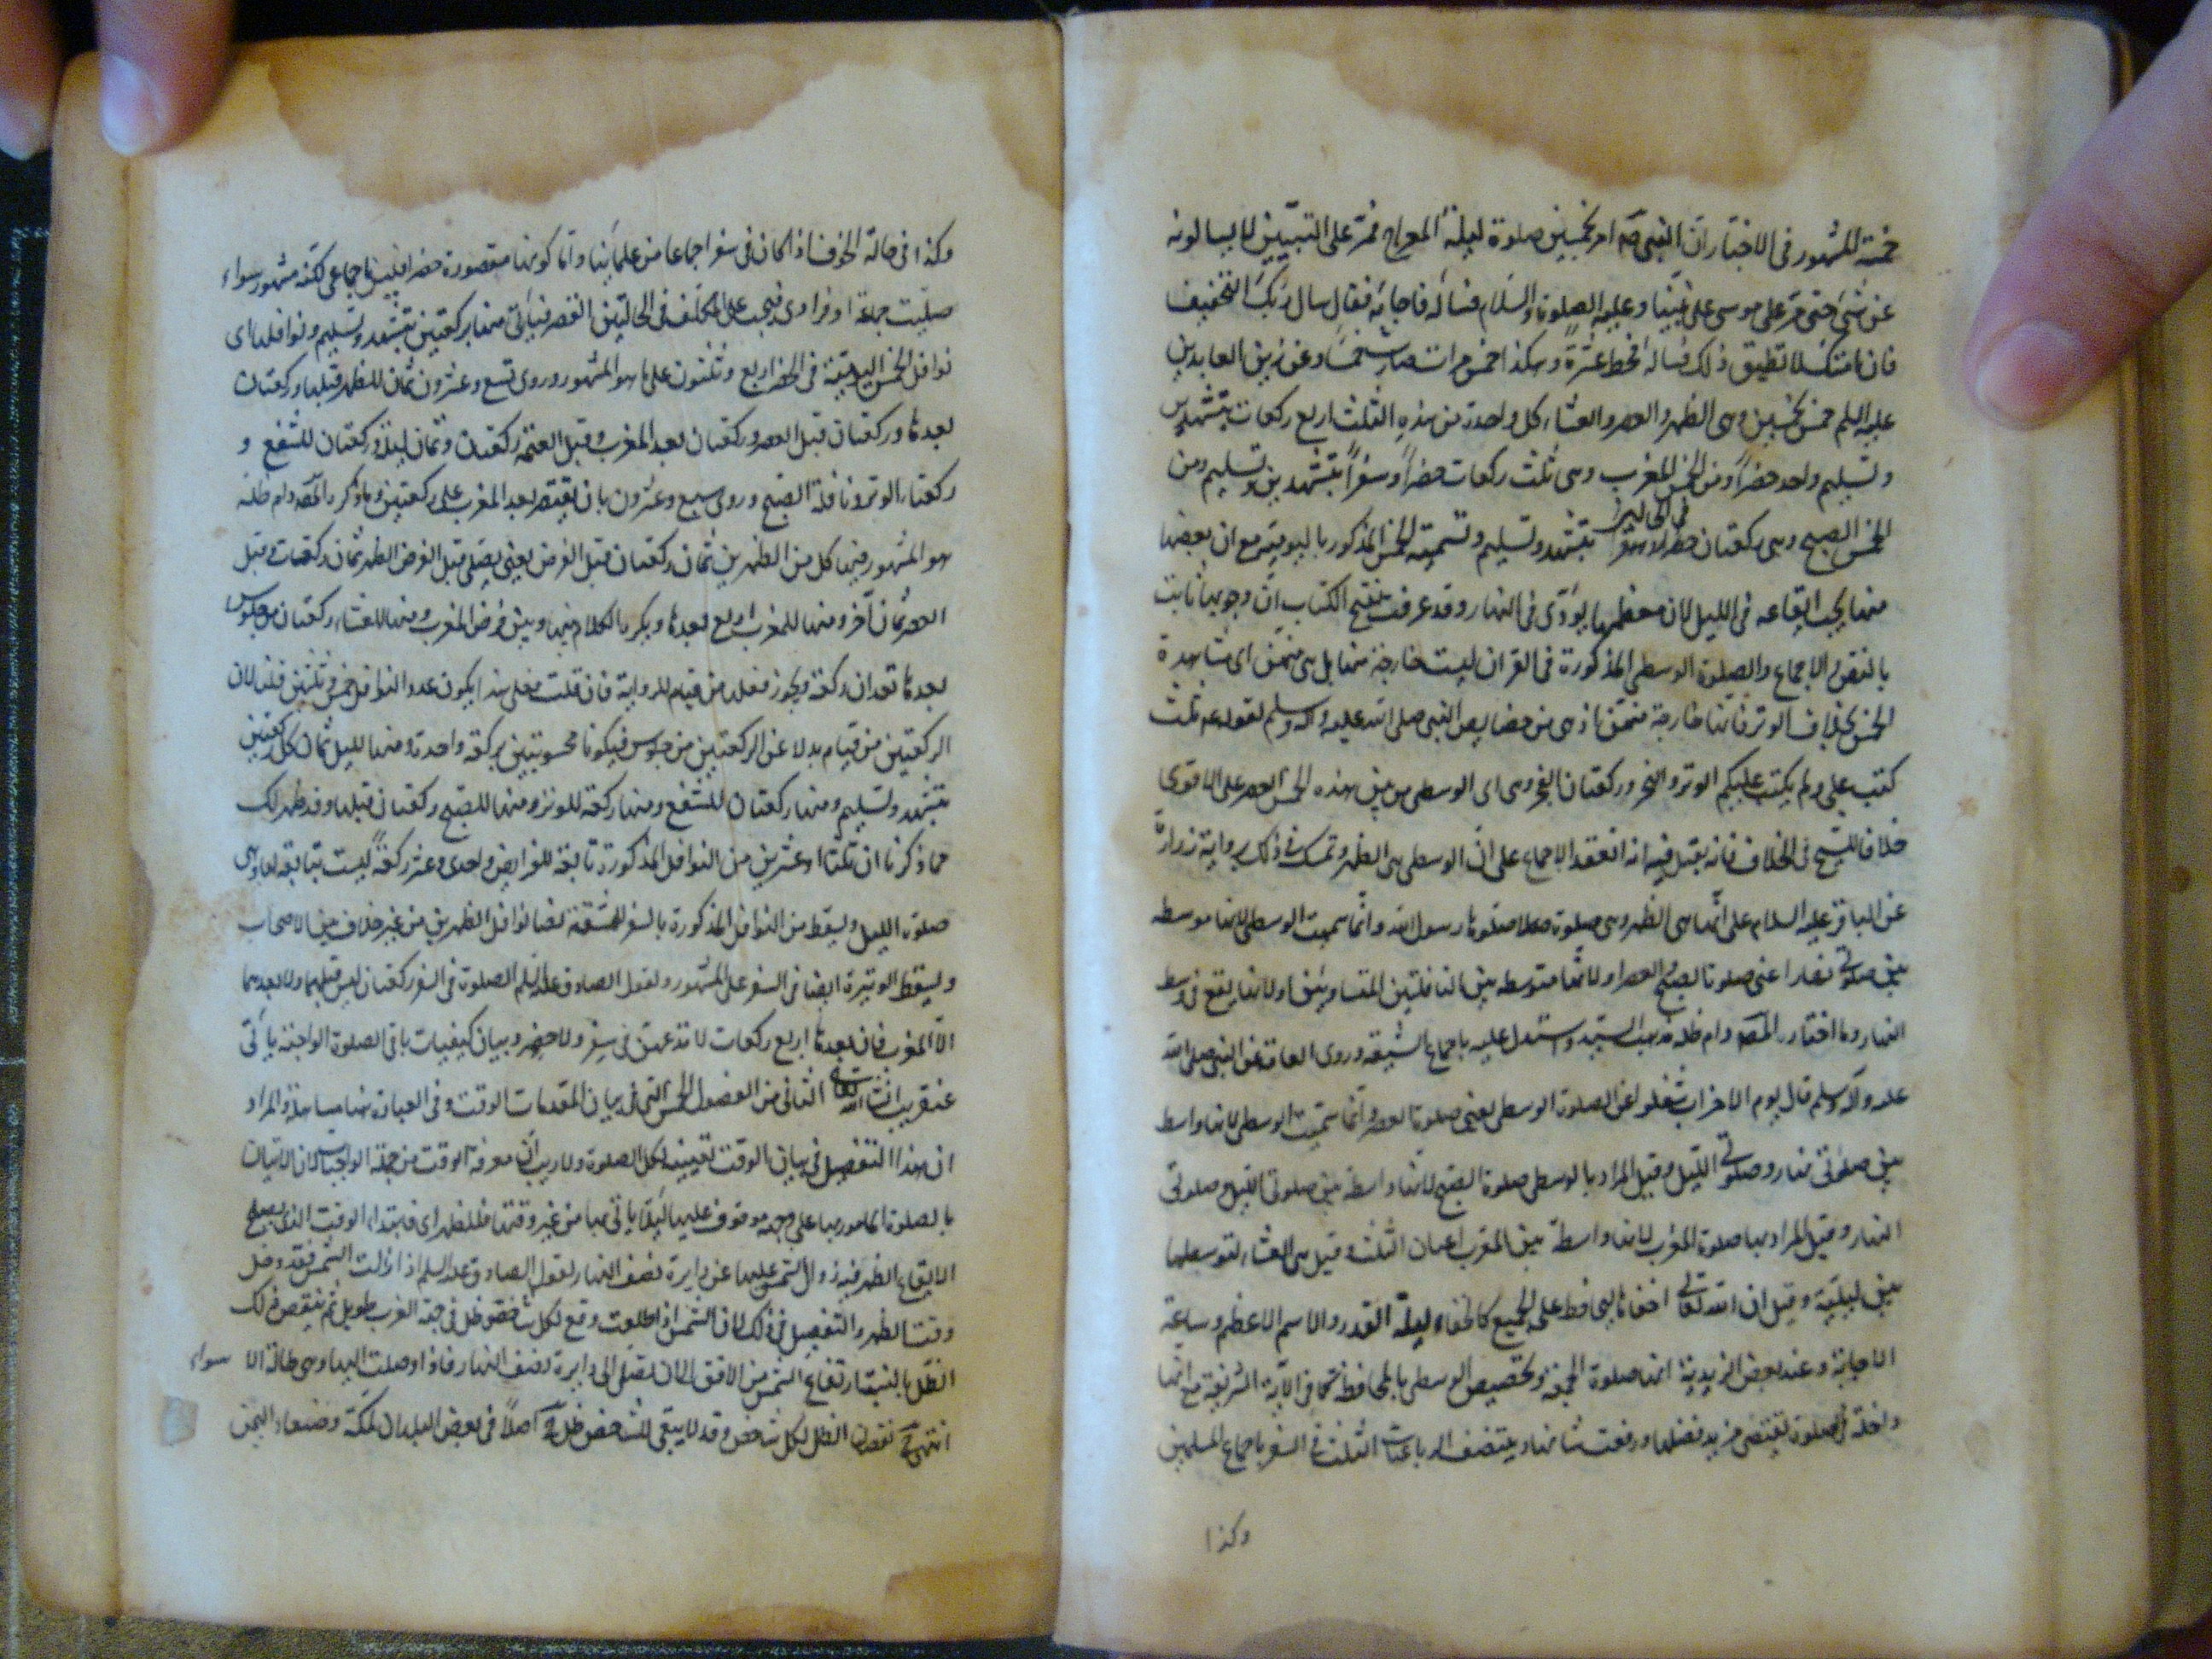 خمسة للمشهور فى الاخبار ان النبى صم امر بخمسين صلوة ليلة المعراج فمر على النبيين لا يسالونه
عن شئ حتى مر على موسى على نبينا وعليه الصلوة والسلام فساله فاجابه فقال سال ربك التخفيف
فان امتك لا تطيق ذلك فساله فحط عشرة وهكذا خمس مرات فصارت خمسا وعن زين العابدين
عليه السلم خمس بخمسين وهى الظهر والعصر والعشاء كل واحدة من هذه الثلث اربع ركعات بتشهدين
وتسليم واحد حضرا ومن الخمس المغرب وهى ثلث ركعات حضرا وسفرا بتشهدين وتسليم ومن
فى الحالين
الخمس الصبح وهى ركعتان حضرا وسفرا بتشهد وتسليم وتسمية الخمس المذكور باليومية مع ان بعضها
منها يجب ايقاعه فى الليل لان معظمها يؤدى فى النهار وقد عرفت الكتاب ان وجوبها ثابت
بالنص والاجماع والصلوة الوسطى المذكورة فى القران ليست خارجة عنها بل هى من
الخمس بخلاف الوتر فانها خارجة عنهن اذ هى من خصايص النبى صلى الله عليه واله وسلم لقوله عم ثلث
كتب على ولم يكتب عليكم الوتر والنحر وركعتان الفجر وهى اى الوسطى من بين هذه الخمس العصر على الاقوى
خلافا للشيخ فى الخلاف فانه نقل فيه انه انعقد الاجماع على ان الوسطى هى الظهر وتمسك فى ذلك برواية زرارة
عن الباقر عليه السلام على انها هى الظهر وهى صلوة صلاها رسول الله وانما سميت الوسطى لانها موسطه
بين صلوتى نهار اعنى صلوة الصبح والعصر او لانها متوسطه بين النافلتين المتساويتين او لانها يقع فى وسط
النهار وما اختاره المصه دام ظله مذهب السيد واستدل عليه باجماع الشيعة وروى العامة عن النبى صلى الله
عليه واله وسلم قال يوم الاحزاب شغلوا عن الصلوة الوسطى يعنى صلوة العصر وانما سميت الوسطى لانها واسط
بين صلوتى نهار وصلوتى الليل وقيل المراد بالوسطى صلوة الصبح لانها واسطة بين صلوتى الليل وصلوتى
النهار وقيل المراد بها صلوة المغرب لانها واسطة بين الثلث وقيل هى العشاء لتوسطها
بين ليلية وقيل ان الله تعالى اخفاها ليحافظ على الجميع كاخفاء ليلة القدر والاسم الاعظم وساعة
الاجابة وعند بعض الزيدية انها صلوة الجمعة وتخصيص الوسطى بالمحافظة فى الاية الشريفة مع انها
داخلة فى الصلوة يقتضى مزيد فضلها ورفعت شانها ويتنصف الرباعيات الثلث فى السفر باجماع المسلمين
وكذا
وكذا فى حالة الخوف اذا كان فى سفر اجماعا من علمائنا واما كونها مقصورة حضرا فليس باجماعى لكنه مشهور سواء
صليت جماعة او فرادى فيجب على المكلف فى الحالتين القصر فياتى منها بركعتين بتشهد وتسليم ونوافلها اى
نوافل الخمس اليومية فى الحضر اربع وثلثون على ما هو المشهور وروى تسع وعشرون ثمان للظهر قبلها وركعتان
بعدها وركعتان قبل العصر وركعتان بعد المغرب وقبل العتمة ركعتان وثمان ليلا وركعتان للشفع و
ركعتا الوتر ونافلة الصبح وروى سبع وعشرون بان يقتصر بعد المغرب على ركعتين وما ذكره المصه دام ظله
هو المشهور فيها كل من الظهرين ثمان ركعتان قبل الفرض يعنى يصلى قبل الفرض الظهر ثمان ركعات وقبل
العصر ثمان آخر ومنها للمغرب اربع بعدها ويكره الكلام بينها وبين فرض المغرب ومنها للعشاء ركعتان من جلوس
بعدها تعدان ركعة ويجوز فعلها من قيام للرواية فان قلت فعلى هذا يكون عدد النوافل خمس وثلثين قلنا لان
الركعتين من قيام بدلا عن الركعتين من جلوس فيكونا محسوبتين بركعة واحدة ومنها لليل ثمان كل ركعتين
بتشهد وتسليم ومنها ركعتان للشفع ومنها ركعة للوتر ومنها للصبح ركعتان قبلها وقد ظهر لك
مما ذكرنا ان ثلثا وعشرين من النوافل المذكورة تابعة للفرايض واحدى عشر ركعة ليست بتابعة لها وهى
صلوة الليل ويسقط من النوافل المذكورة بالسفر نوافل الظهرين من غير خلاف بين الاصحاب
ويسقط الوتيرة ايضا فى السفر على المشهور ولقول الصادق عليه السلم الصلوة فى السفر ركعتان ليس قبلهما ولا بعدهما
الا المغرب فان بعدها اربع ركعات لا تدعهن فى سفر ولا حضر وبيان كيفيات باقى الصلوة الواجبة ياتى
عنقريب انشاء الله تعالى الثانى من الفصول الخمس التى فى بيان المقدمات الوقت وفى العبارة هنا مسامحة والمراد
ان هذا التفصيل فى بيان الوقت لكل الصلوة ولا ريب ان معرفة الوقت من جملة الواجبات لان الاتيان
بالصلوة المامور بها على وجهه موقوف عليها لئلا ياتى بها من غير وقتها فللظهر اى فابتداء الوقت الذى يصلح
لايقاع الظهر فيه زوال الشمس عليها عن دايرة نصف النهار لقول الصادق عليه السلم اذا زالت الشمس فقد دخل
وقت الظهر والتفصيل فى ذلك ان الشمس اذا طلعت وقع لكل شاخص ظل فى جهة الغرب طويل ثم ينقص ذلك
الظل بالنسبة ارتفاع الشمس من الافق الى ان تصل الى دايرة نصف النهار فاذا وصلت اليها وهى حالة الا سواء
انتهى نقصان الظل لكل شاخص وقد لا يبقى للشاخص ظل اصلا فى بعض البلدان كمكة وصنعاء اليمن